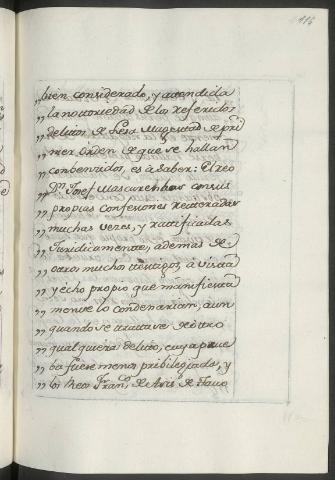 115
„ bien considerado, y attendida
„ la notoriedad de los referidos
„ delitos de Lesa Magestad de pri
„ mer orden de que se hallan
„ conbenzidos, es à saber: El reo
„ Dn. Josef Mascarenhas con sus
„ propias confesiones reiteradas
„ muchas vezes, y rattificadas
„ Juridicamente, ademas de
„ otros muchos testigos, à vista
„ y echo propio que manifiesta
„ mente lo condenarian, aun
„ quando se tratase de otro
„ qualquiera delito, cuya prue
„ ba fuese menos pribilegiada, y
„ los Reos Franco. de Asis de Tavo